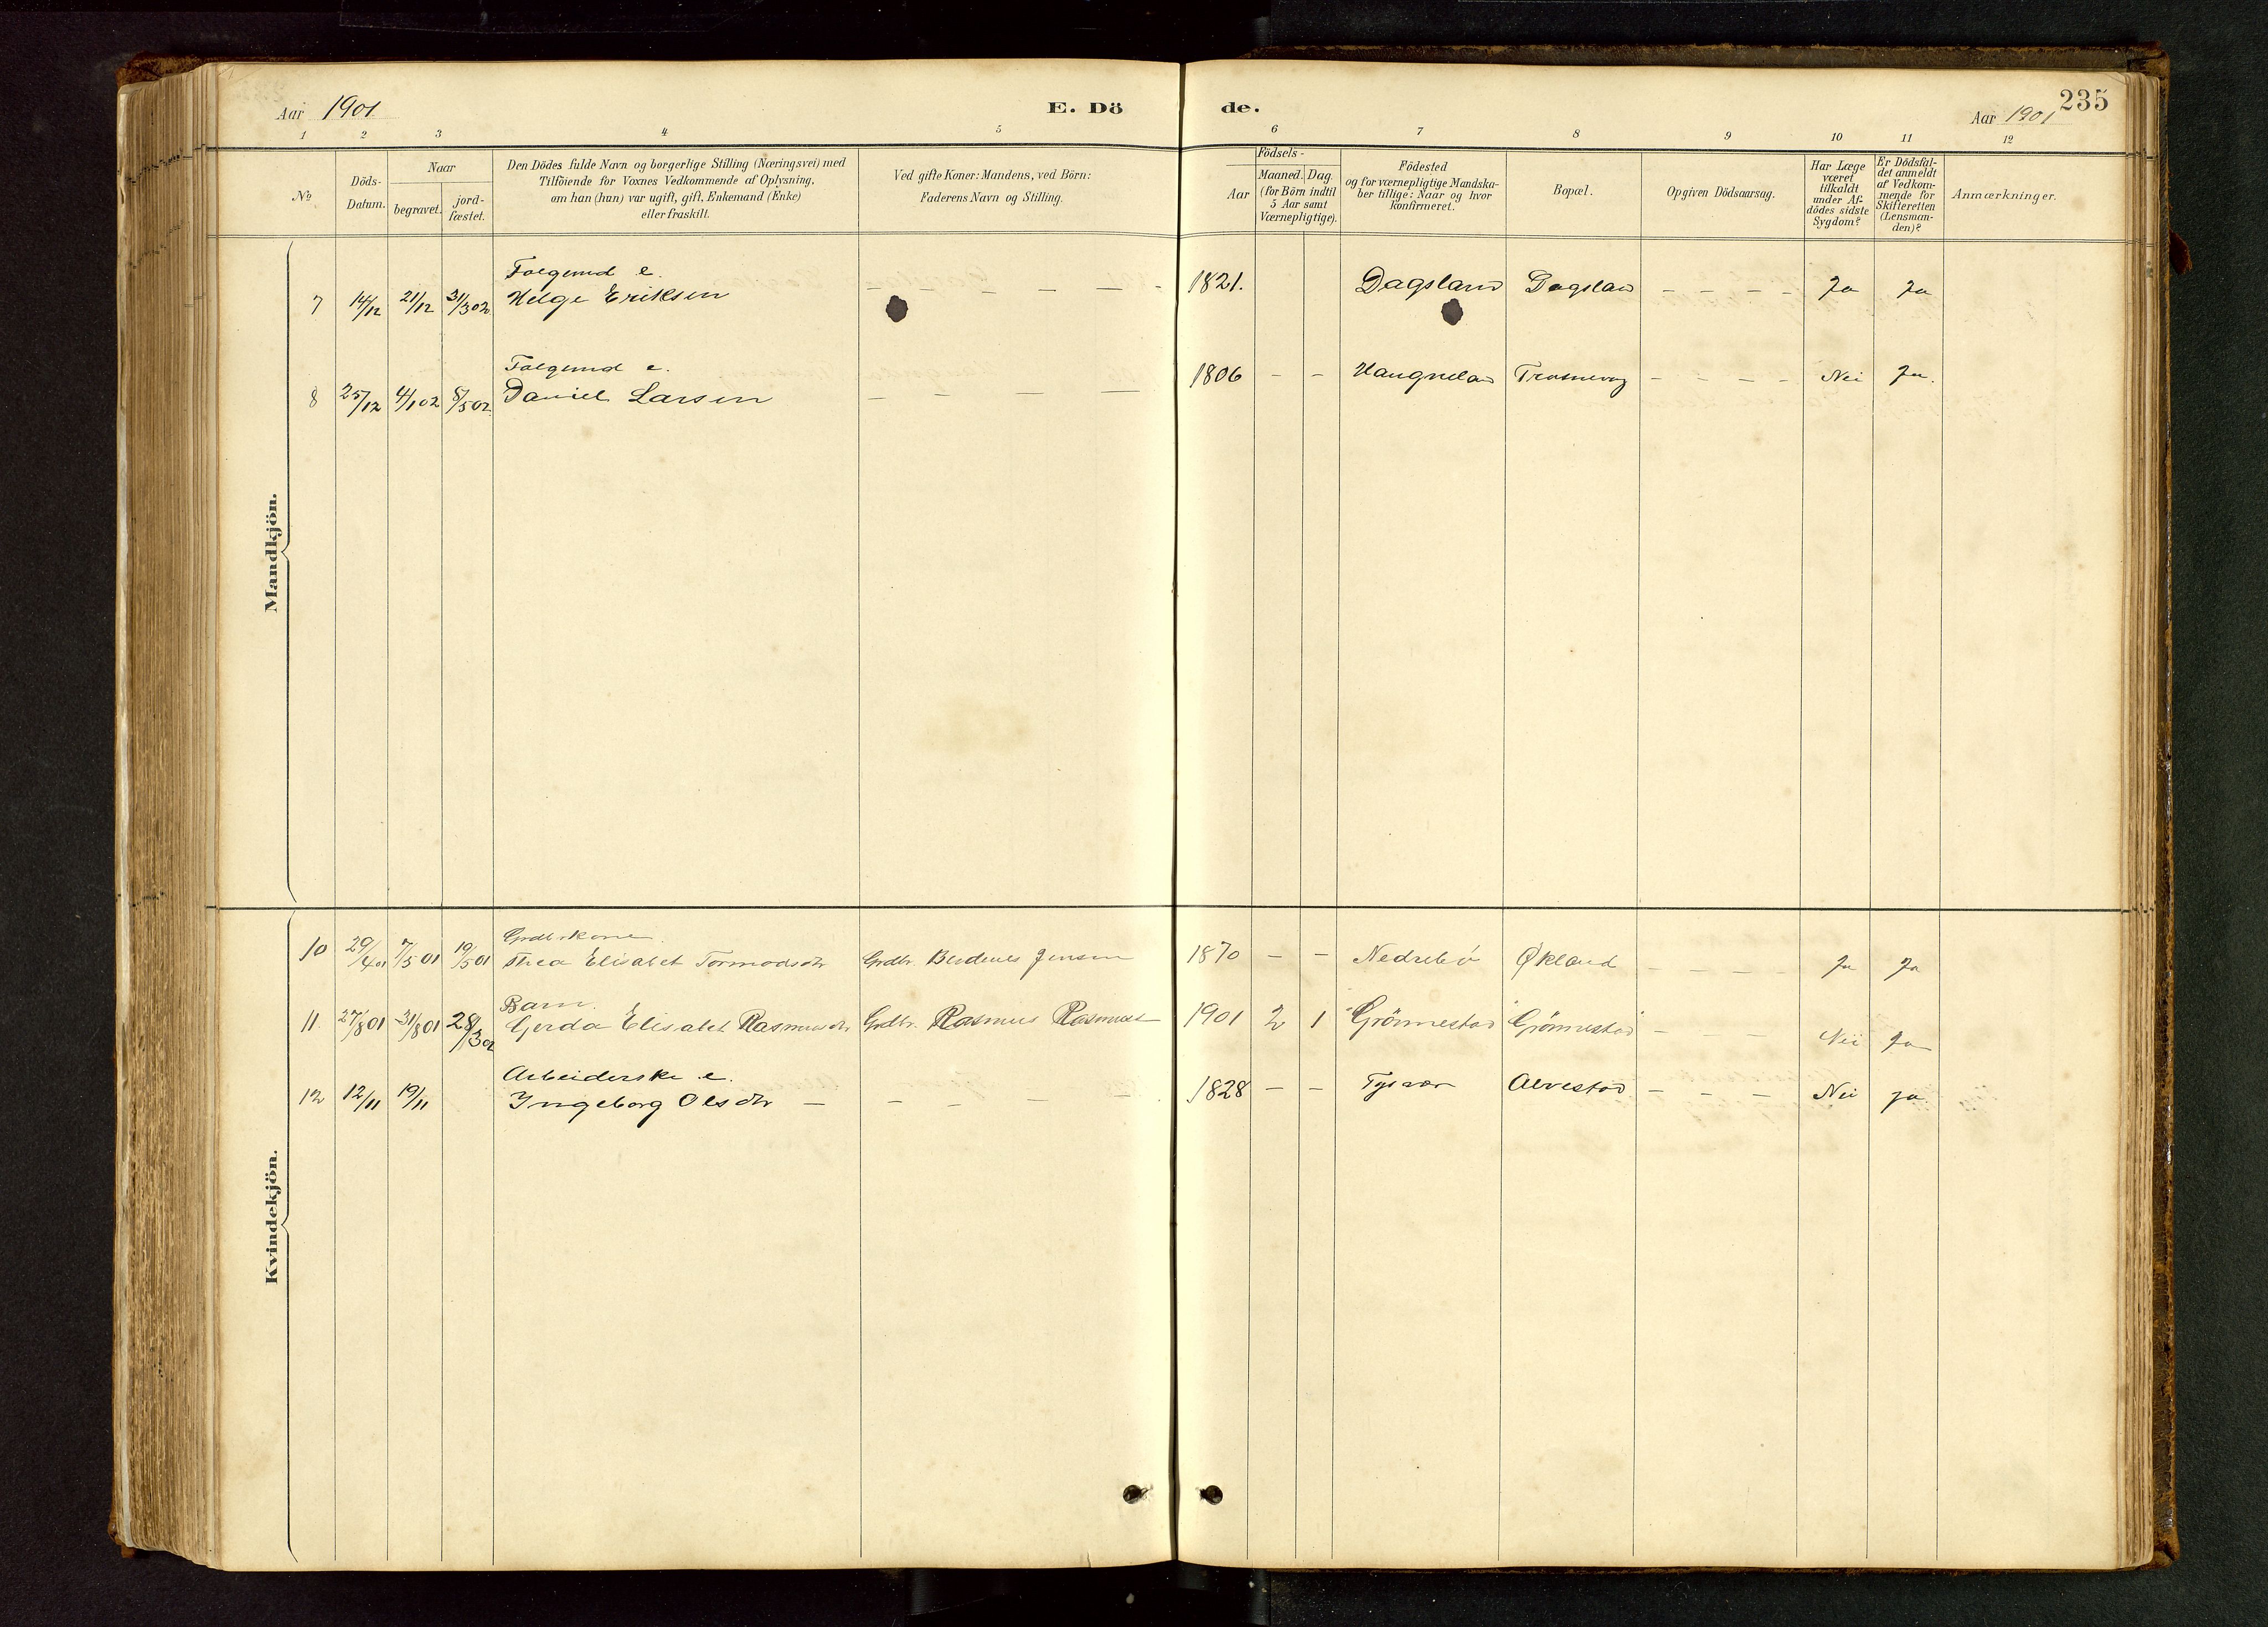 Aar 1901.
E. Dö
de.
Aar 1901
235
1 2 3 4 5 6 7 8 9 10 11 12
No
Döds-
Datum.
Naar
begravet.
jord-
fæstet.
Den Dödes fulde Navn og borgerlige Stilling (Næringsvei) med
Tilföiende for Voxnes Vedkommende af Oplysning,
om han (hun) var ugift, gift, Enkemand (Enke)
eller fraskilt.
Ved gifte Koner: Mandens, ved Börn:
Faderens Navn og Stilling.
Födsels-
Aar
Maaned. Dag.
(for Börn indtil
5 Aar samt
Værnepligtige).
Födested
og for værnepligtige Mandska-
ber tillige: Naar og hvor
konfirmeret.
Bopæl.
Opgiven Dödsaarsag.
Har Læge
været
tilkaldt
under Af-
dödes sidste
Sygdom?
Er Dödsfal-
det anmeldt
af Vedkom-
mende for
Skifteretten
(Lensman-
den)?
Anmærkninger.
Mandkjön.
Folgemd e.
7 14/12 21/12 31/302 Helge Eriksen — — — — — — 1821. Dagsland Dagsland — — — — Ja Ja
Folgemd e.
8 25/12 4/102 8/502 Daniel Larsen — — — — — 1806 — — Haugneland — — — — Nei Ja.
Kvindekjön.
Grdbrskone
10 29/401 7/501 19/501 Thea Elisabet Tormodsdtr Grdbr. Jensen 1870 — — Nedrebö Økland — — — — Ja Ja
Barn.
11. 27/801 31/801 28/302 Gerda Elisabet Rasmusdtr Grdbr. Rasmus Rasmussen 1901 2 1 Grönnestad Grönnestad — — — Nei Ja
Arbeiderske e.
12 12/11 19/11 Ingeborg Olsdtr — — — — — 1828 — — Tysvær Alvestad — — — Nei Ja